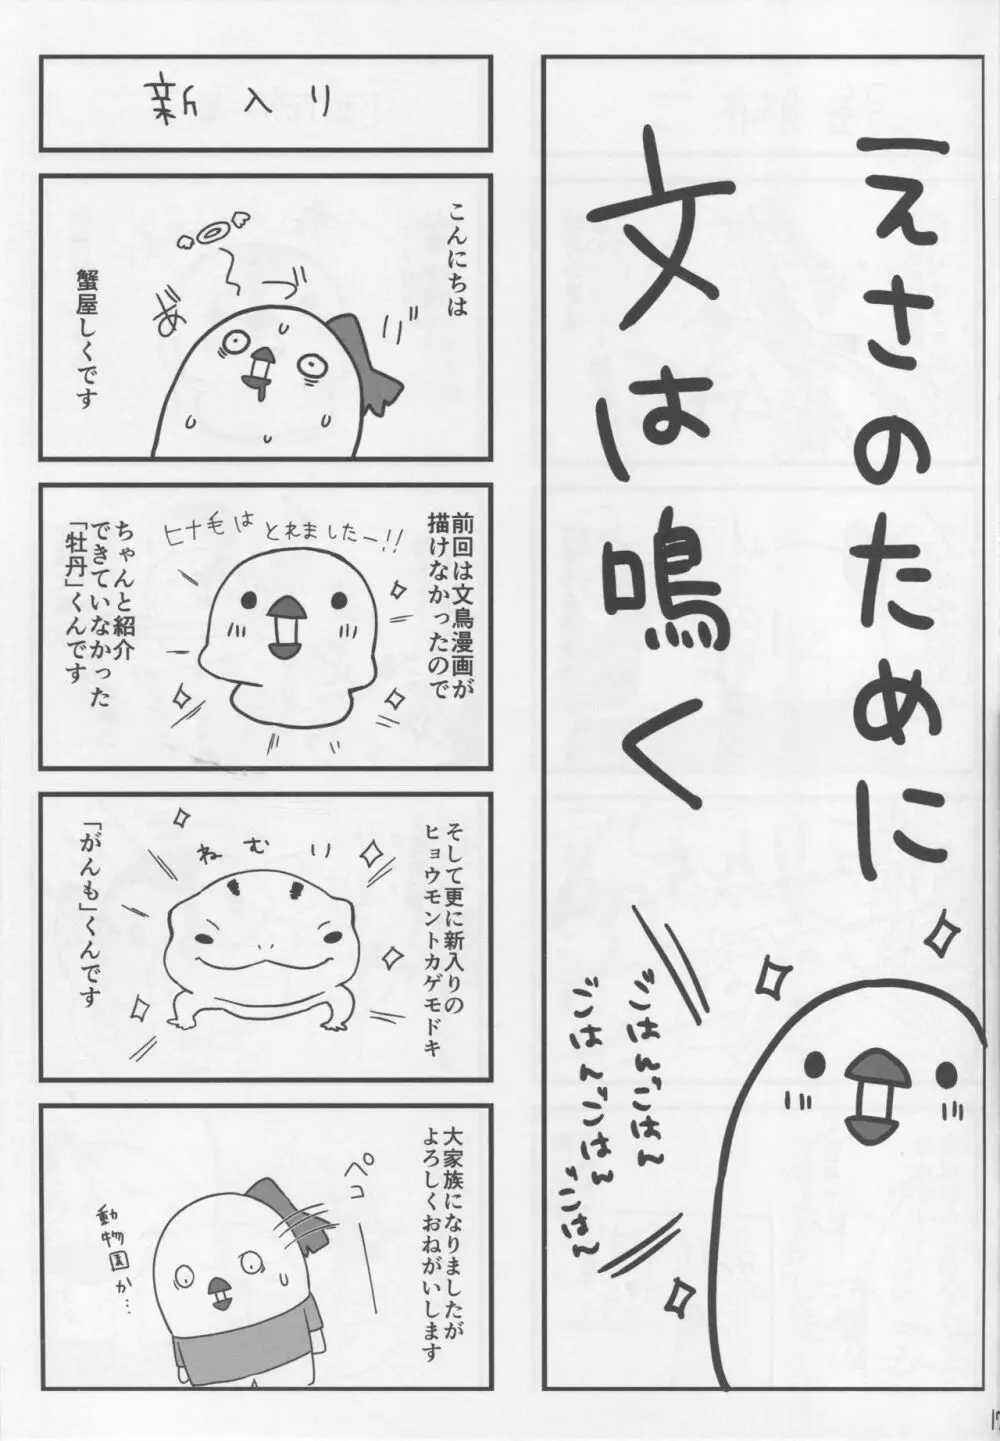 えさのために
文は鳴く
ごはんごはん
ごはんごはん
ごはん
新入り
こんにちは
蟹屋しくです
前回は文鳥漫画が
描けなかったので
ヒナ毛は とれましたー!!
ちゃんと紹介
できていなかった
「牡丹」くんです
そして更に新入りの
ヒョウモントカゲモドキ
ねむり
「がんも」くんです
大家族になりましたが
よろしくおねがいします
ペコ
動物園か…
17